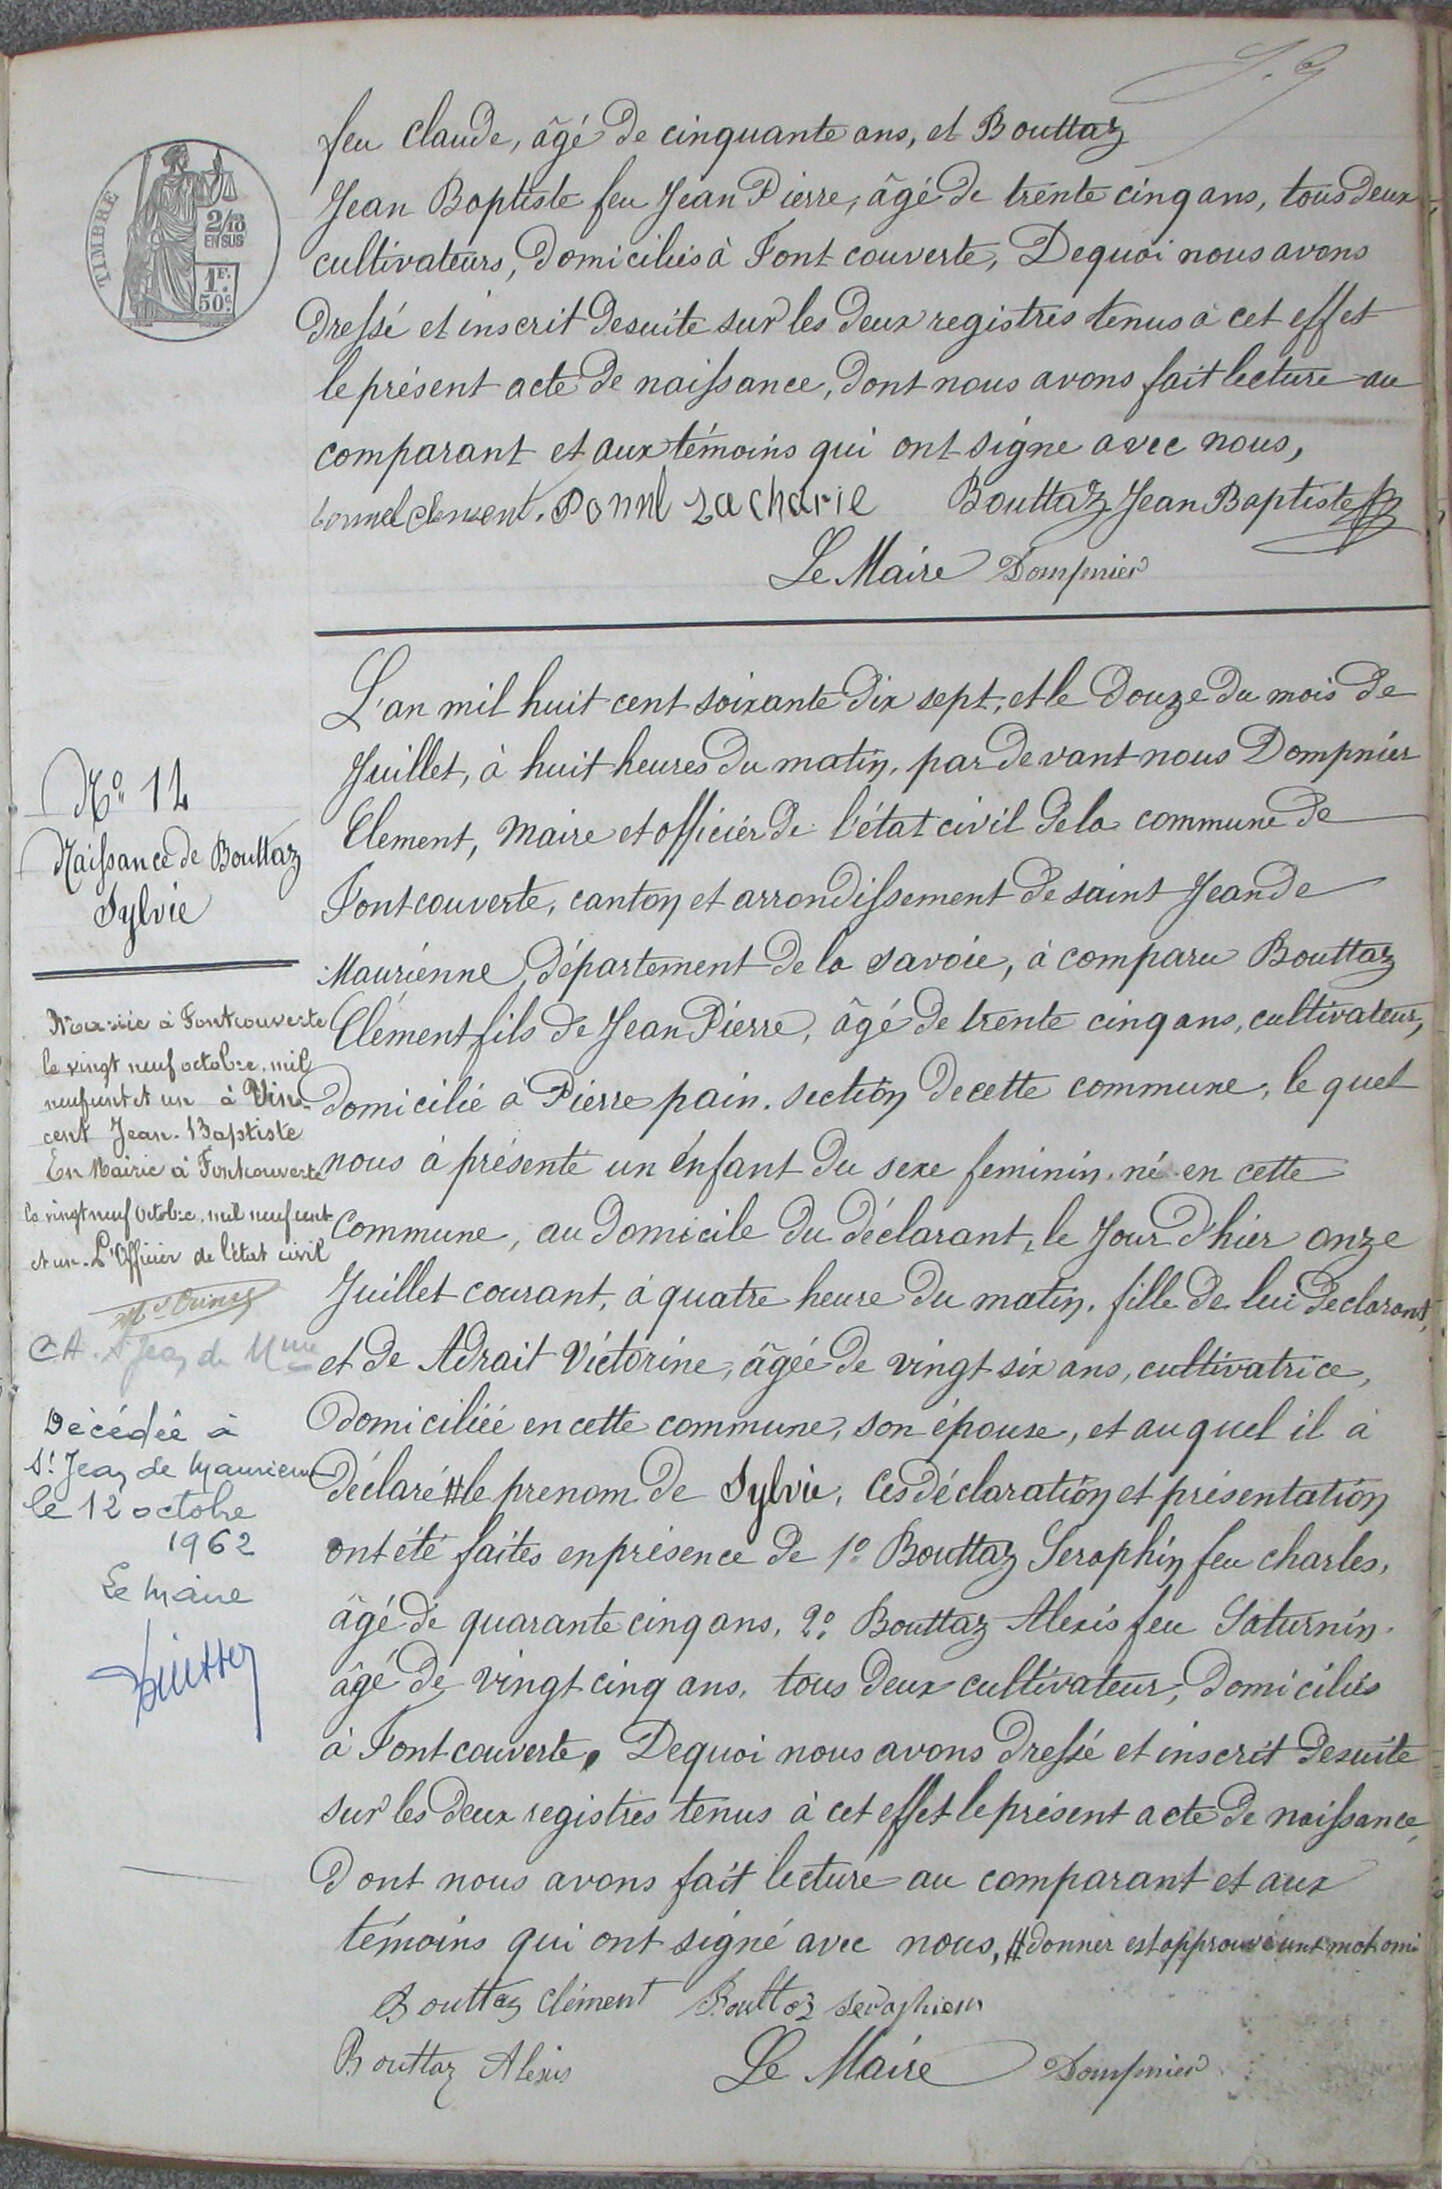 TIMBRE
2/10
EN SUS
1F.
50c.
feu Claude, âgé de cinquante ans, et Bouttaz
Jean Baptiste feu Jean Pierre, âgé de trente cinq ans, tous deux,
cultivateurs, domiciliés à Font couverte, Dequoi nous avons
dressé et inscrit desuite sur les deux registres tenus à cet effet
le présent acte de naissance, dont nous avons fait lecture au
comparant et aux témoins qui ont signé avec nous,
bonnel clement. Bonnel zacharie Bouttaz Jean Baptiste
Le Maire Dompnier
N° 14
Naissance de Bouttaz
Sylvie
Mariée à Fontcouverte
le vingt neuf octobre, mil
neuf cent et un à Vin-
cent Jean-Baptiste
En Mairie à Fontcouverte
le vingt neuf octobre, mil neuf cent
et un. L'Officier de l'état civil
St Jean de Mnne
Décédée à
St Jean de Maurienne
le 12 octobre
1962
Le Maire
L'an mil huit cent soixante dix sept, et le douze du mois de
Juillet, à huit heures du matin, par devant nous Dompnier
Clement, Maire et officier de l'état civil dela commune de
Fontcouverte, canton et arrondissement de saint Jean de
Maurienne, département de la savoie, à comparu Bouttaz
Clément fils de Jean Pierre, âgé de trente cinq ans, cultivateur,
domicilié à Pierre pain. section de cette commune, le quel
nous à présente un enfant du sexe feminin. né en cette
commune, au domicile du déclarant, le Jour d'hier onze
Juillet courant, à quatre heure du matin. fille de lui declarant,
et de Adrait Victorine, âgéé de vingt six ans, cultivatrice,
domiciliéé en cette commune, son épouse, et auquel il à
déclaré # le prenom de Sylvie, Ces déclaration et présentation
ont été faites en présence de 1° Bouttaz Seraphin feu charles,
âgé de quarante cinq ans, 2° Bouttaz Alexis feu Saturnin.
âgé de vingt cinq ans, tous deux cultivateur, domiciliés
à Font couverte, Dequoi nous avons dressé et inscrit desuite
sur les deux registres tenus à cet effet le présent acte de naissance,
dont nous avons fait lecture au comparant et aux
témoins qui ont signé avec nous, # donner est approuvé unt mot omi
Bouttaz clément Bouttaz seraphien
Bouttaz Alexis Le Maire Dompnier